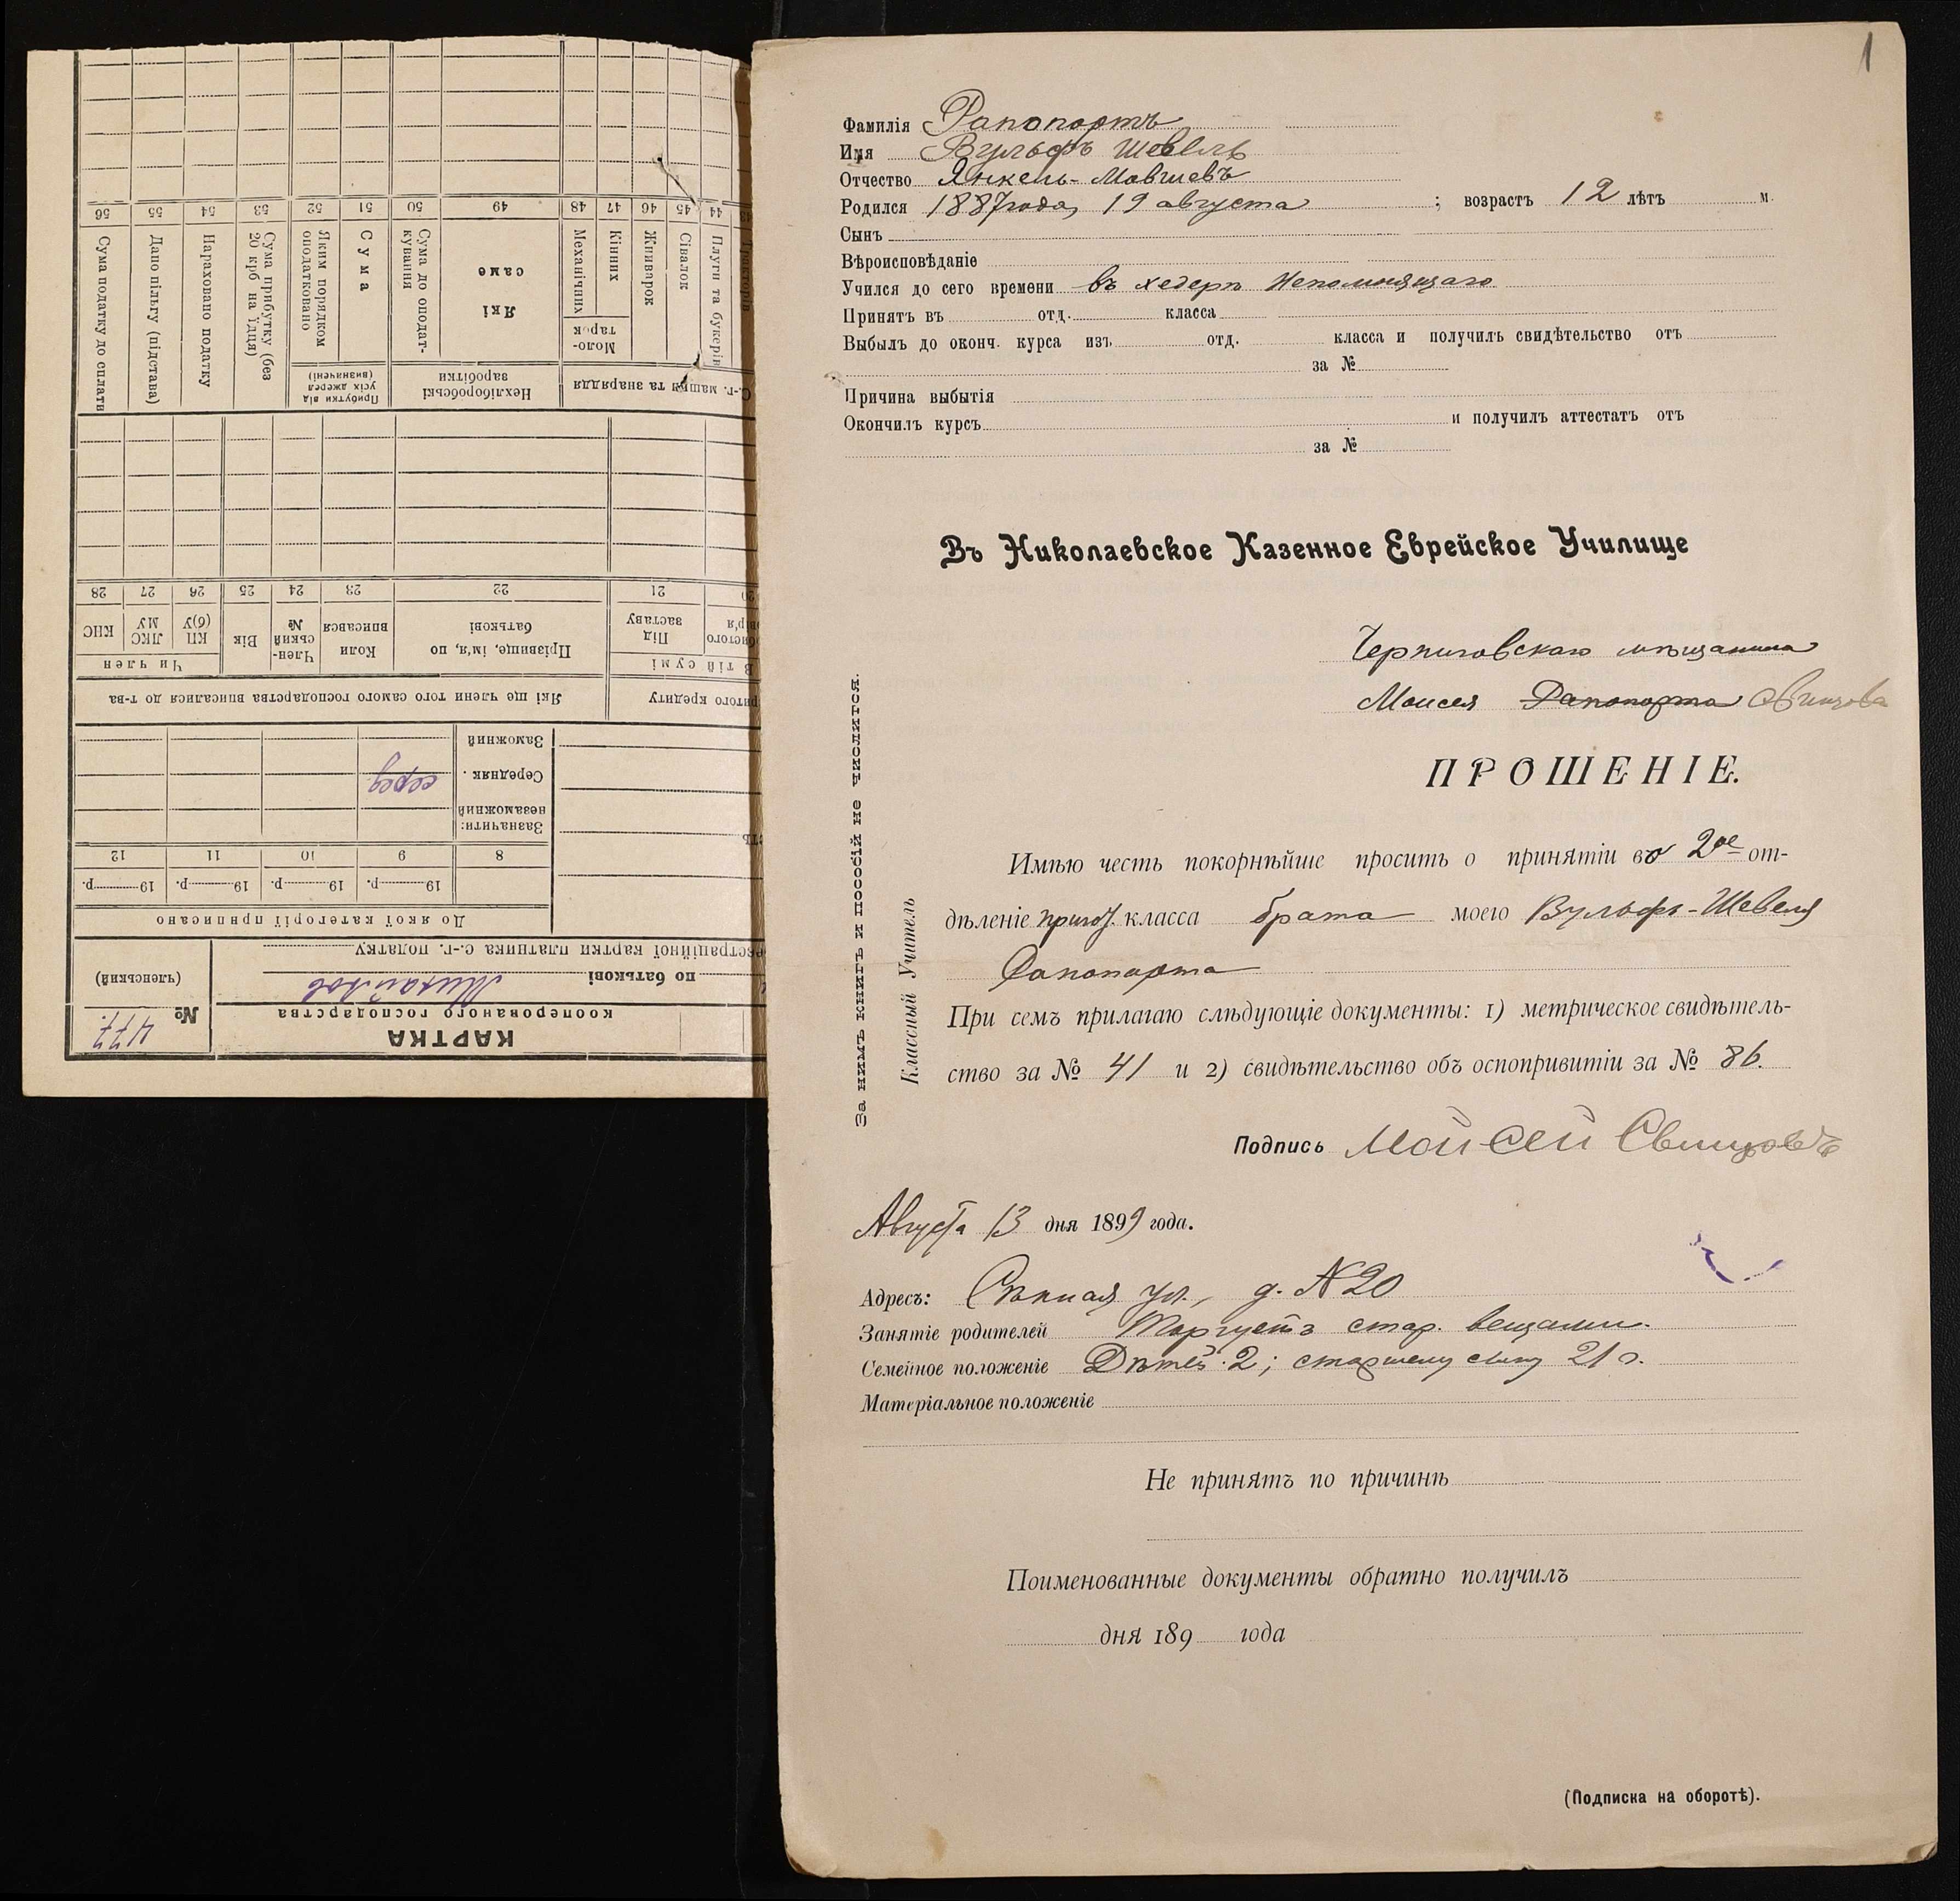 1
Фамилія Рапопортъ
Имя Вульфъ Шевель
Отчество Янкель-Мовшевъ
Родился 1887 года, 19 августа ; возрастъ 12 лѣтъ м.
Сынъ
Вѣроисповѣданіе
Учился до сего времени въ хедерѣ Непомнящаго
Принятъ въ отд. класса
Выбылъ до оконч. курса изъ отд. класса и получилъ свидѣтельство отъ
за №
Причина выбытія
Окончилъ курсъ и получилъ аттестатъ отъ
за №
Въ Николаевское Казенное Еврейское Училище
Черниговскаго мѣщанина
Моисея Рапопорта Свинцова
ПРОШЕНІЕ.
Имѣю честь покорнѣйше просить о принятіи во 2ое от-
дѣленіе пригот. класса брата моего Вульфъ-Шевеля
Рапопорта
При семъ прилагаю слѣдующіе документы: 1) метрическое свидѣтель-
ство за № 41 и 2) свидѣтельство объ оспопривитіи за № 86.
Подпись Мойсей Свинцовъ
Августа 13 дня 1899 года.
Адресъ: Сѣнная ул., д. N 20
Занятіе родителей Торгуетъ стар. вещами.
Семейное положеніе Дѣтей 2; старшему сыну 21 г.
Матеріальное положеніе
Не принятъ по причинѣ
Поименованные документы обратно получилъ
дня 189 года
(Подписка на оборотѣ).
За нимъ книгъ и пособій не числится.
Классный Учитель
КАРТКА
кооперованого господарства
№ 477.
(членський)
по батькові Михайлов
естраційної картки платника с.-г. податку
До якої категорії приписано
19 р. 19 р. 19 р. 19 р.
8 9 10 11 12
Зазначити:
незаможний
Середняк серед
Заможний
ритого кредиту
Які ще члени того самого господарства вписалися до т-ва
В тій сумі
Під заставу
Прізвище, ім'я, по батькові
Коли вписався
Член-ський №
Вік
Чи член
КП (б)У
ЛКС МУ
КНС
21 22 23 24 25 26 27 28
С.-г. машини та знаряддя
Нехліборобські заробітки
Прибутки від усіх джерел (визначені)
Плуги та букерів
Сівалок
Жниварок
Моло-тарок
Кінних
Механічних
Які саме
Сума до оподат-кування
Сума
Яким порядком оподатковано
Сума прибутку (без 20 крб на їдця)
Нараховано податку
Дано пільгу (підстава)
Сума податку до сплати
44 45 46 47 48 49 50 51 52 53 54 55 56